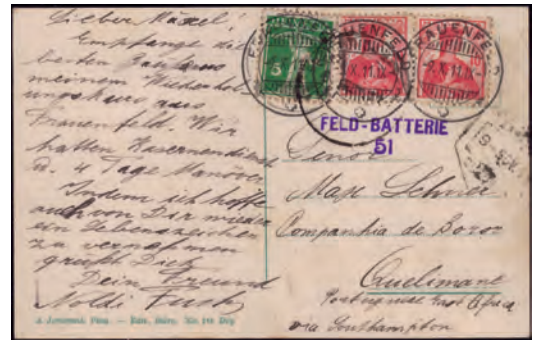 Lieber Maxel!
Empfange die
besten Grüsse aus
meinem Wiederhol-
ungskurs aus
Frauenfeld. Wir
hatten Kasernendienst
u. 4 Tage Manöver
Indem ich hoffe
auch von Dir wieder
ein Lebenszeichen
zu vernehmen
grüsst Dich
Dein Freund
Noldi
FRAUENFELD
FRAUENFELD
FELD-BATTERIE
51
Senor
Max
Companhia de Boror
Quelimane
Portuguese East Africa
via Southampton